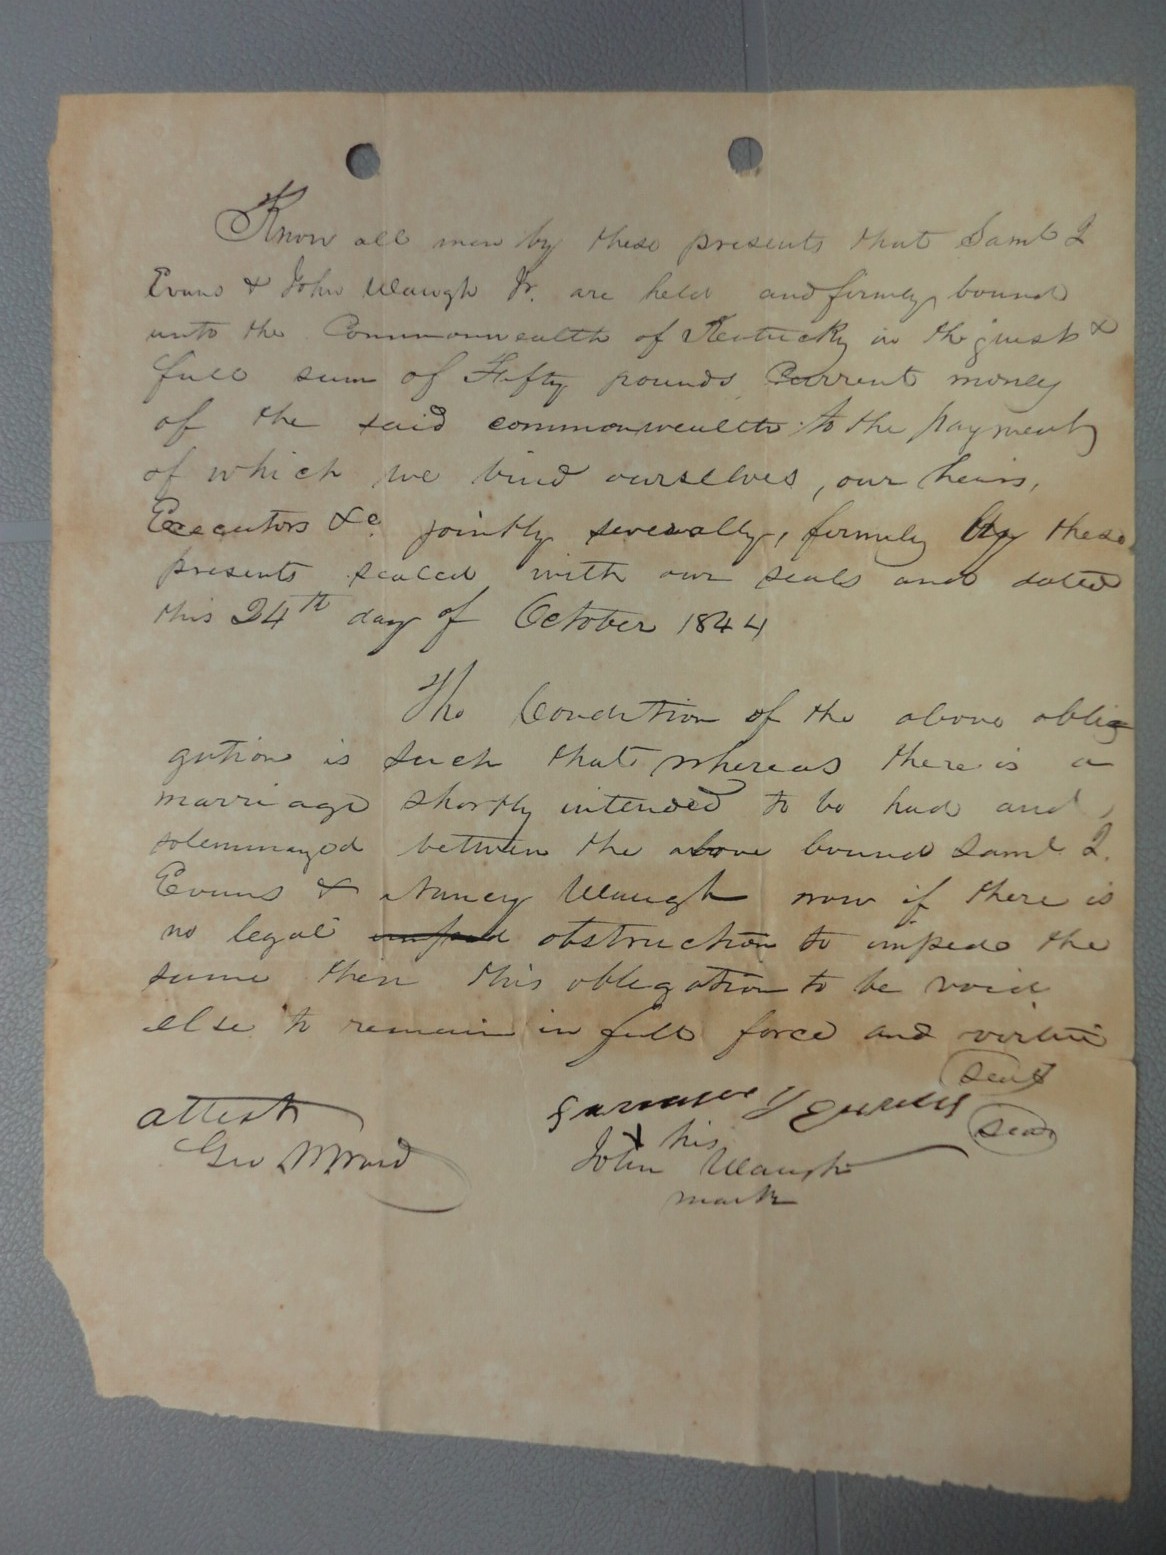 Know all men by these presents that Saml I
Evans & John Waugh Jr. are held and firmly bound
unto the Commonwealth of Kentucky in the just &
full sum of Fifty pounds Current money
of the said commonwealth to the payment
of which we bind ourselves, our heirs,
Executors &c. jointly severally, firmly by these
presents sealed with our seals and dated
this 24th day of October 1844
The Condition of the above oblig
gation is such that whereas there is a
marriage shortly intended to be had and
solemnized between the above bound Saml I.
Evans & Nancy Waugh now if there is
no legal obstruction to impede the
same then this obligation to be void
else to remain in full force and virtue
seal
Evans seal
his
John Waugh
mark
attest
Geo